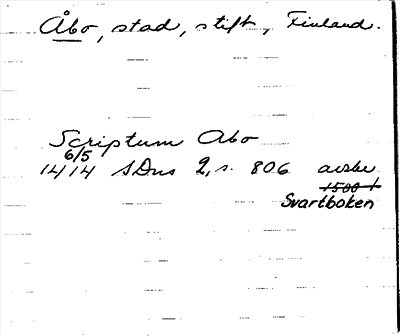 Åbo, stad, stift, Finland.
Scriptum Abo
6/5
1414 SDns 2, s. 806 avskr
1500 t
Svartboken